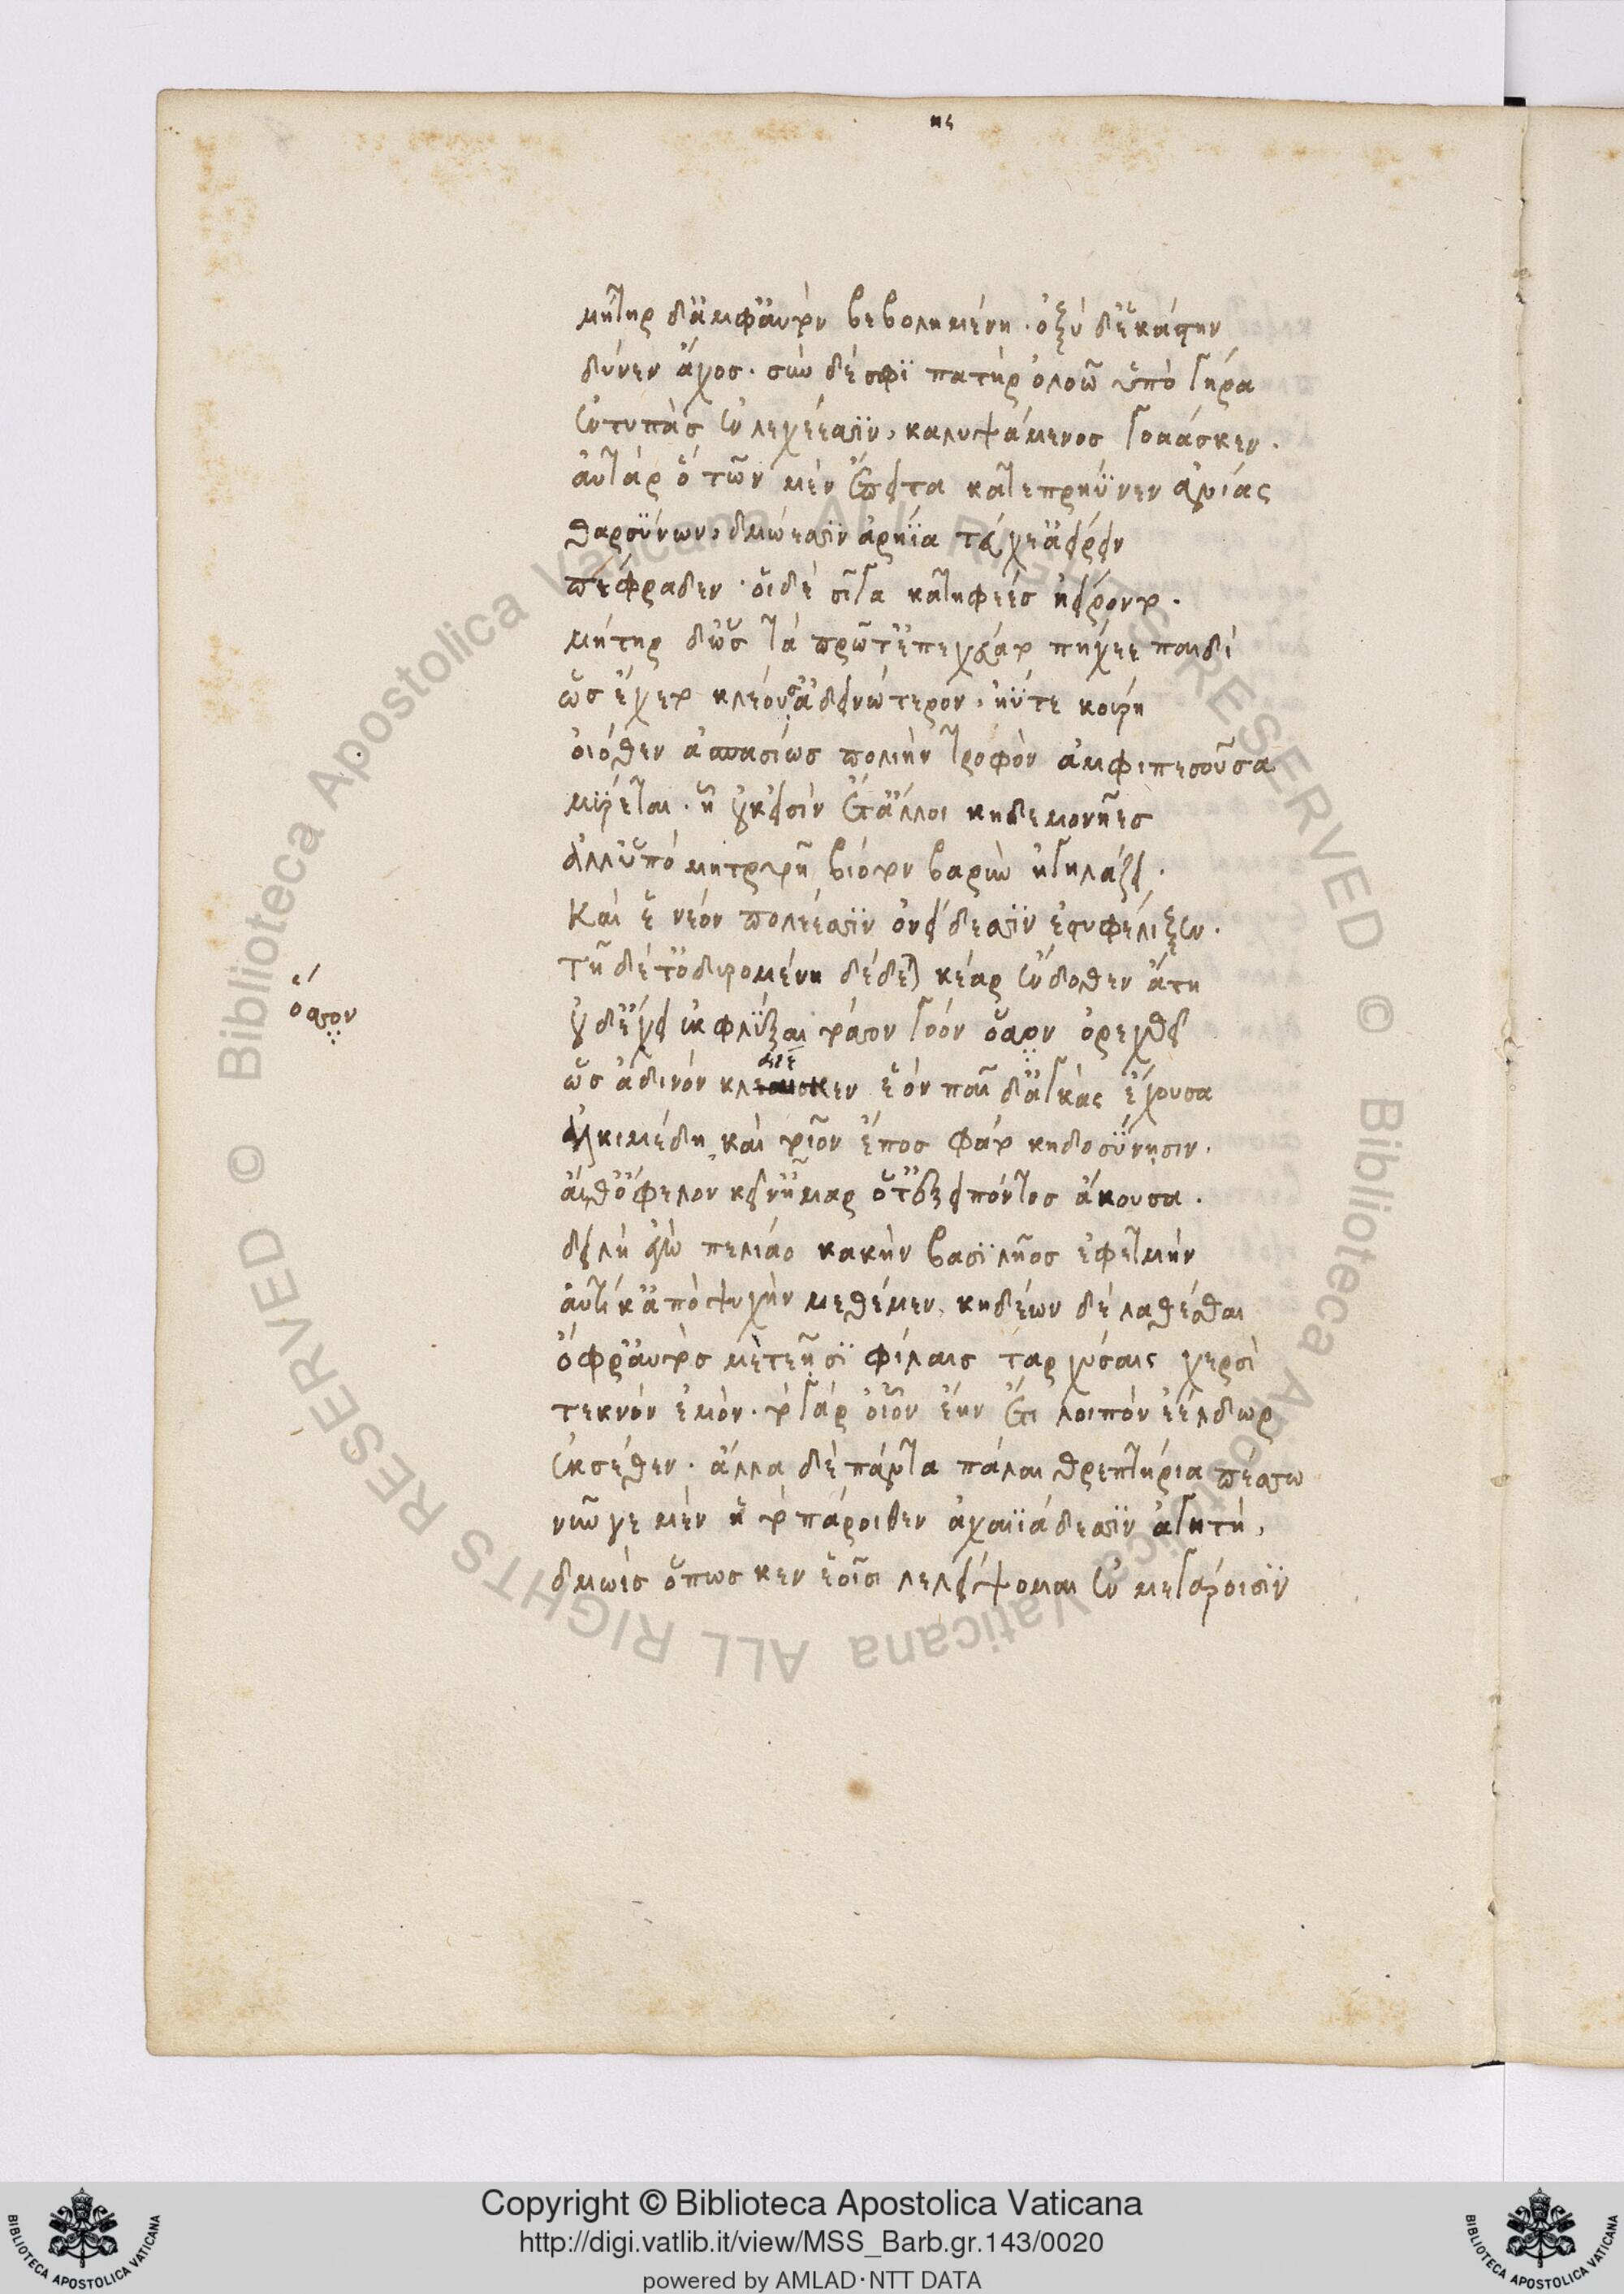 ης
μήτηρ δ' ἀμφ' αὐτὸν βεβολημένη· ὀξὺ δ' ἑκάστην
δῦνεν ἄχος· σὺν δέ σφϊ πατὴρ ὀλοῶ ὑπὸ γήρα
ἐντυπὰς ἐν λεχέεσσϊν, καλυψάμενος γοάασκεν.
αὐτὰρ ὁ τῶν μὲν ἔπειτα κατεπρήϋνεν ἀνίας
θαρσύνων, δμώεσσϊν ἀρήϊα τεύχε' ἀείρειν
πέφραδεν· οἱ δὲ σῖγα κατηφέες ἠείροντο.
μήτηρ δ' ὡς τὰ πρῶτ' ἐπεχεύατο πήχεε παιδὶ
ὣς ἔχετο κλέουσ' ἀδεινώτερον, ἠΰτε κούρη
οἰόθεν ἀσπασίως πολιὴν τροφὸν ἀμφιπεσοῦσα
μύρεται· ἧ οὐκ εἰσὶν ἔτ' ἄλλοι κηδεμονῆες
ἀλλ' ὑπὸ μητρυιῆ βίοτον βαρὺν ἡγηλάζει.
Καί ἑ νέον πολέεσσϊν ὀνείδεσσϊν ἐστυφέλιξεν.
τῆ δέ τ' ὀδυρομένη δέδεται κέαρ ἔνδοθεν ἄτη
οὐδ' ἔχει ἐκφλύξαι τόσσον γόον ὅσσον ὀρεχθεῖ
ὅσσον
ὣς ἀδινὸν κλαίεσκεν ἑὸν παῖδ' ἀγκὰς ἔχουσα
Ἀλκιμέδη, καὶ τοῖον ἔπος φάτο κηδοσύνησιν.
αἴθ' ὄφελον κεῖν' ἦμαρ ὅτ' ἐξειπόντος ἄκουσα.
δειλὴ ἐγὼ πελίαο κακὴν βασϊλῆος ἐφετμὴν
αὐτίκ' ἀπὸ ψυχὴν μεθέμεν, κηδέων δὲ λαθέσθαι
ὄφρ' αὐτός με τεῆσϊ φίλαις ταρχύσαις χερσὶ
τεκνὸν ἐμόν· τὸ γὰρ οἶον ἔην ἔτι λοιπὸν ἐέλδωρ
ἐκ σέθεν· ἄλλα δὲ πάντα πάλαι θρεπτήρια πέσσω
νῦν γε μὲν ἡ τὸ πάροιθεν ἀχαιϊάδεσσϊν ἀγητή,
δμωὶς ὅπως κενεοῖσι λελείψομαι ἐν μεγάροισϊν
Copyright © Biblioteca Apostolica Vaticana
http://digi.vatlib.it/view/MSS_Barb.gr.143/0020
powered by AMLAD·NTT DATA
BIBLIOTECA APOSTOLICA VATICANA
BIBLIOTECA APOSTOLICA VATICANA
© Biblioteca Apostolica Vaticana ALL RIGHTS RESERVED
© Biblioteca Apostolica Vaticana ALL RIGHTS RESERVED